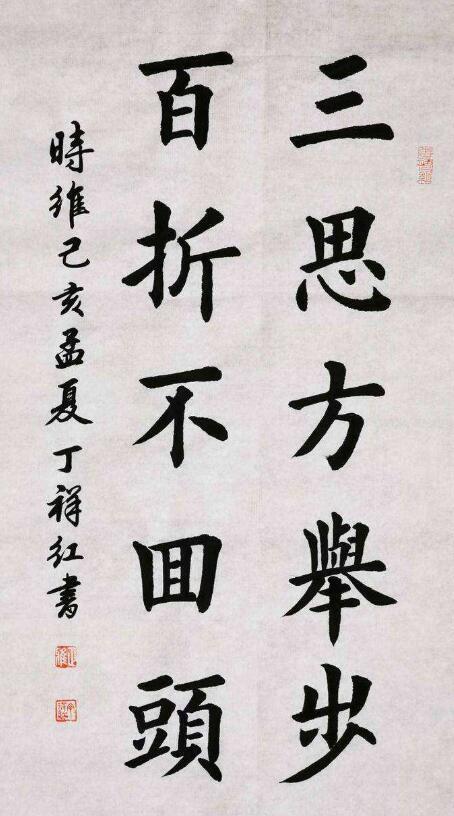 三思方舉步
百折不回頭
時維己亥孟夏丁祥红書